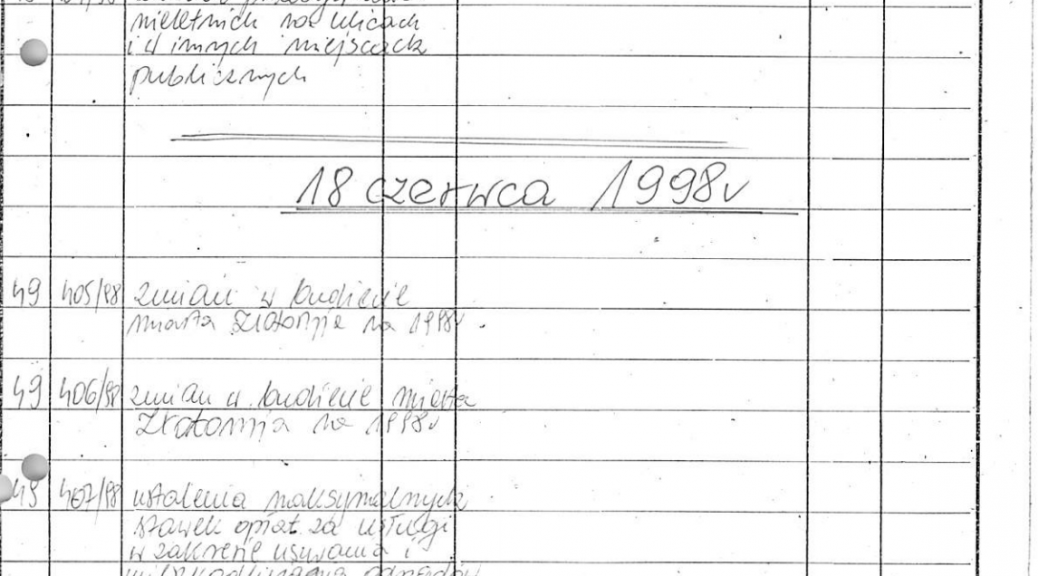 nieletnich na ulicach
i w innych miejscach
publicznych
18 czerwca 1998r
49 405/98 zmian w budżecie
miasta Złotoryja na 1998r.
49 406/98 zmian w budżecie miasta
Złotoryja na 1998r
49 407/98 ustalenia maksymalnych
stawek opłat za usługi
w zakresie usuwania i
odpadów